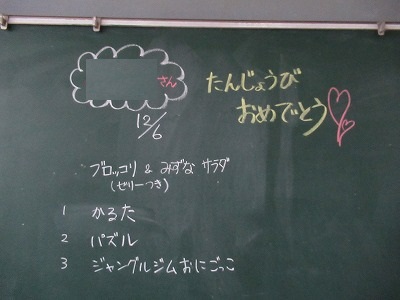 さん
たんじょうび
おめでとう
12/6
ブロッコリ & みずな サラダ
(ゼリーつき)
1 かるた
2 パズル
3 ジャングルジムおにごっこ